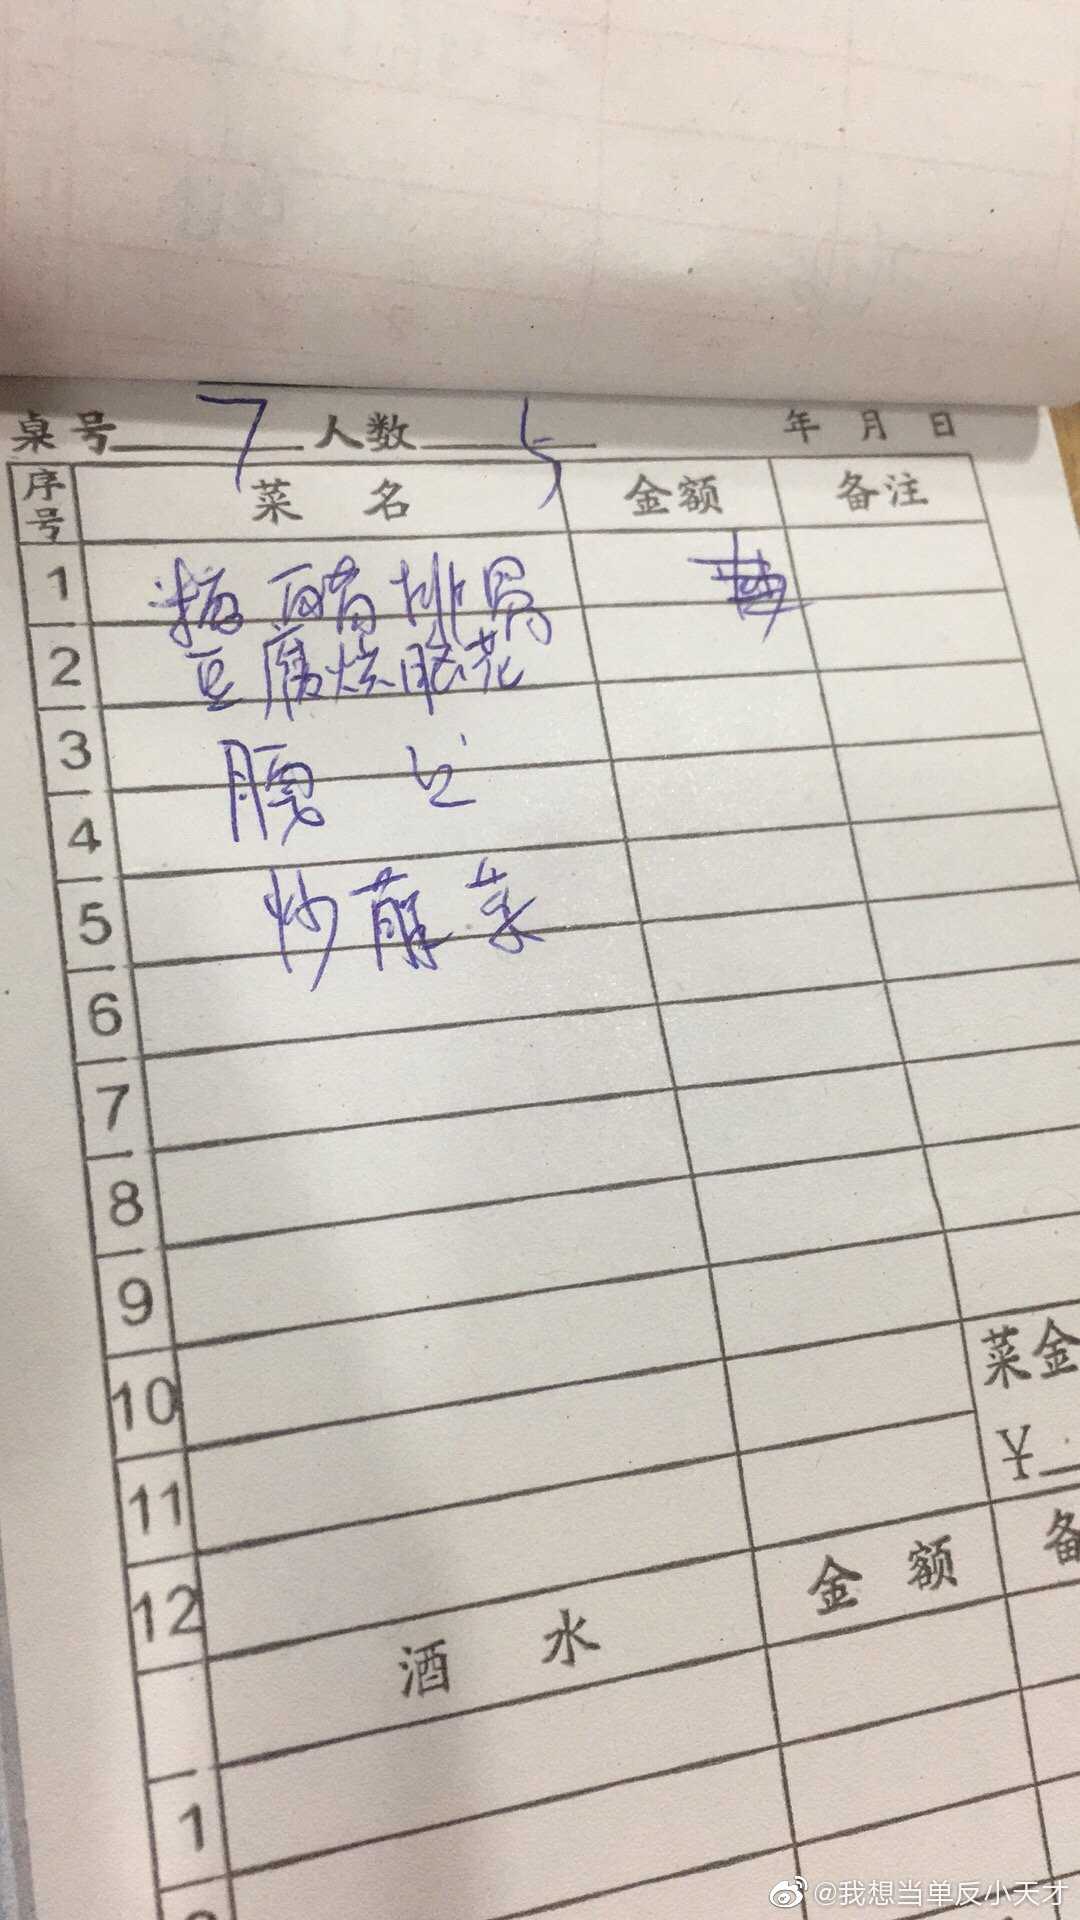 桌号 7 人数 5 年 月 日
序号 菜名 金额 备注
1 糖醋排骨
2 豆腐烧脑花
3 腰
4
5 炒菜
6
7
8
9
10
11
12
菜金
¥
酒水 金额 备
1
@我想当单反小天才